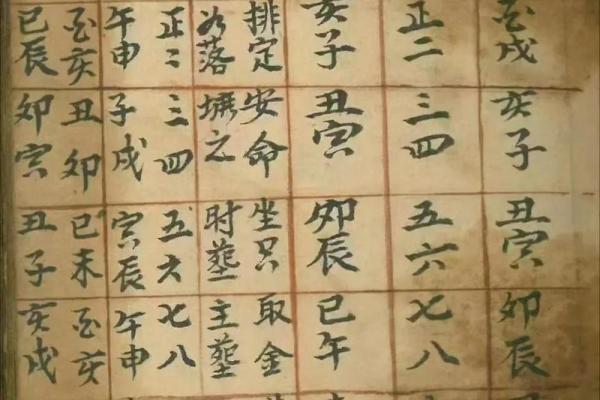 酉戌亥子丑寅卯辰
正二三四五六七八
亥子丑寅卯辰巳午
排定安命坐只取金
落之时塟主塟
正二三四五六七八
午申子戌寅辰午申
酉亥丑卯巳未酉亥
巳辰卯寅丑子亥戌